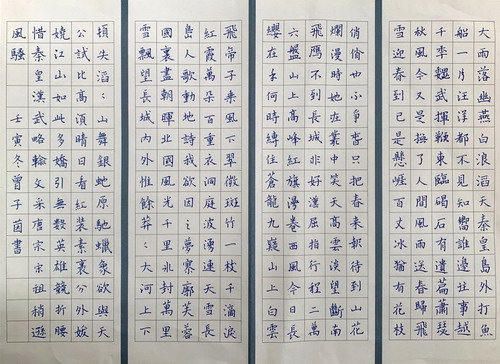 大雨落幽燕白浪滔天秦皇島外打魚
船一片汪洋都不見知嚮誰邊往事越
千年魏武揮鞭東臨碣石有遺篇蕭瑟
秋風今又是換了人間風雨送春歸飛
雪迎春到已是懸崖百丈冰猶有花枝
俏俏也不爭春只把春來報待到山花
爛漫時她在叢中笑天高雲淡望斷南
飛雁不到長城非好漢屈指行程二萬
六盤山上高峰紅旗漫卷西風今日長
纓在手何時縛住蒼龍九嶷山上白雲
飛帝子乘風下翠微斑竹一枝千滴淚
紅霞萬朵百重衣洞庭波湧連天雪長
島人歌動地詩我欲因之夢寥廓芙蓉
國裏盡朝暉北國風光千里冰封萬里
雪飄望長城內外惟餘莽〻大河上下
頓失滔〻山舞銀蛇原馳蠟象欲與天
公試比高須晴日看紅裝素裹分外妖
嬈江山如此多嬌引無數英雄競折腰
惜秦皇漢武略輸文采唐宗宋祖稍遜
風騷 壬寅冬曾子茵書